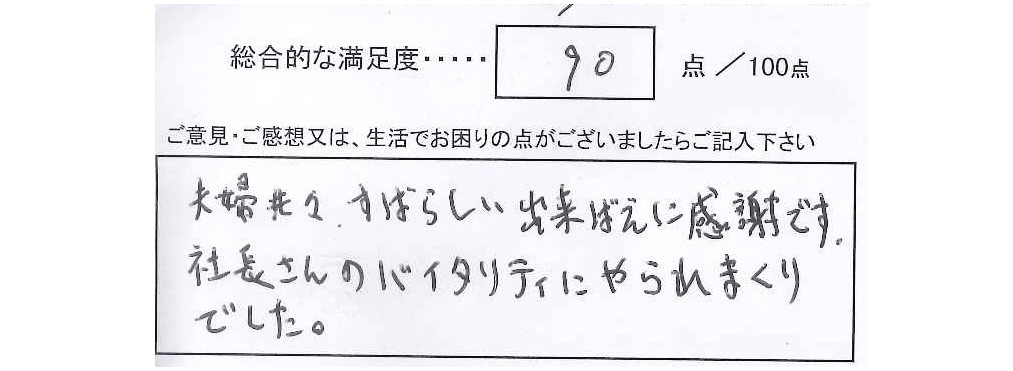 総合的な満足度・・・・・ 90 点 ／100点
ご意見・ご感想又は、生活でお困りの点がございましたらご記入下さい
夫婦共々、すばらしい出来ばえに感謝です.
社長さんのバイタリティにやられまくり
でした。